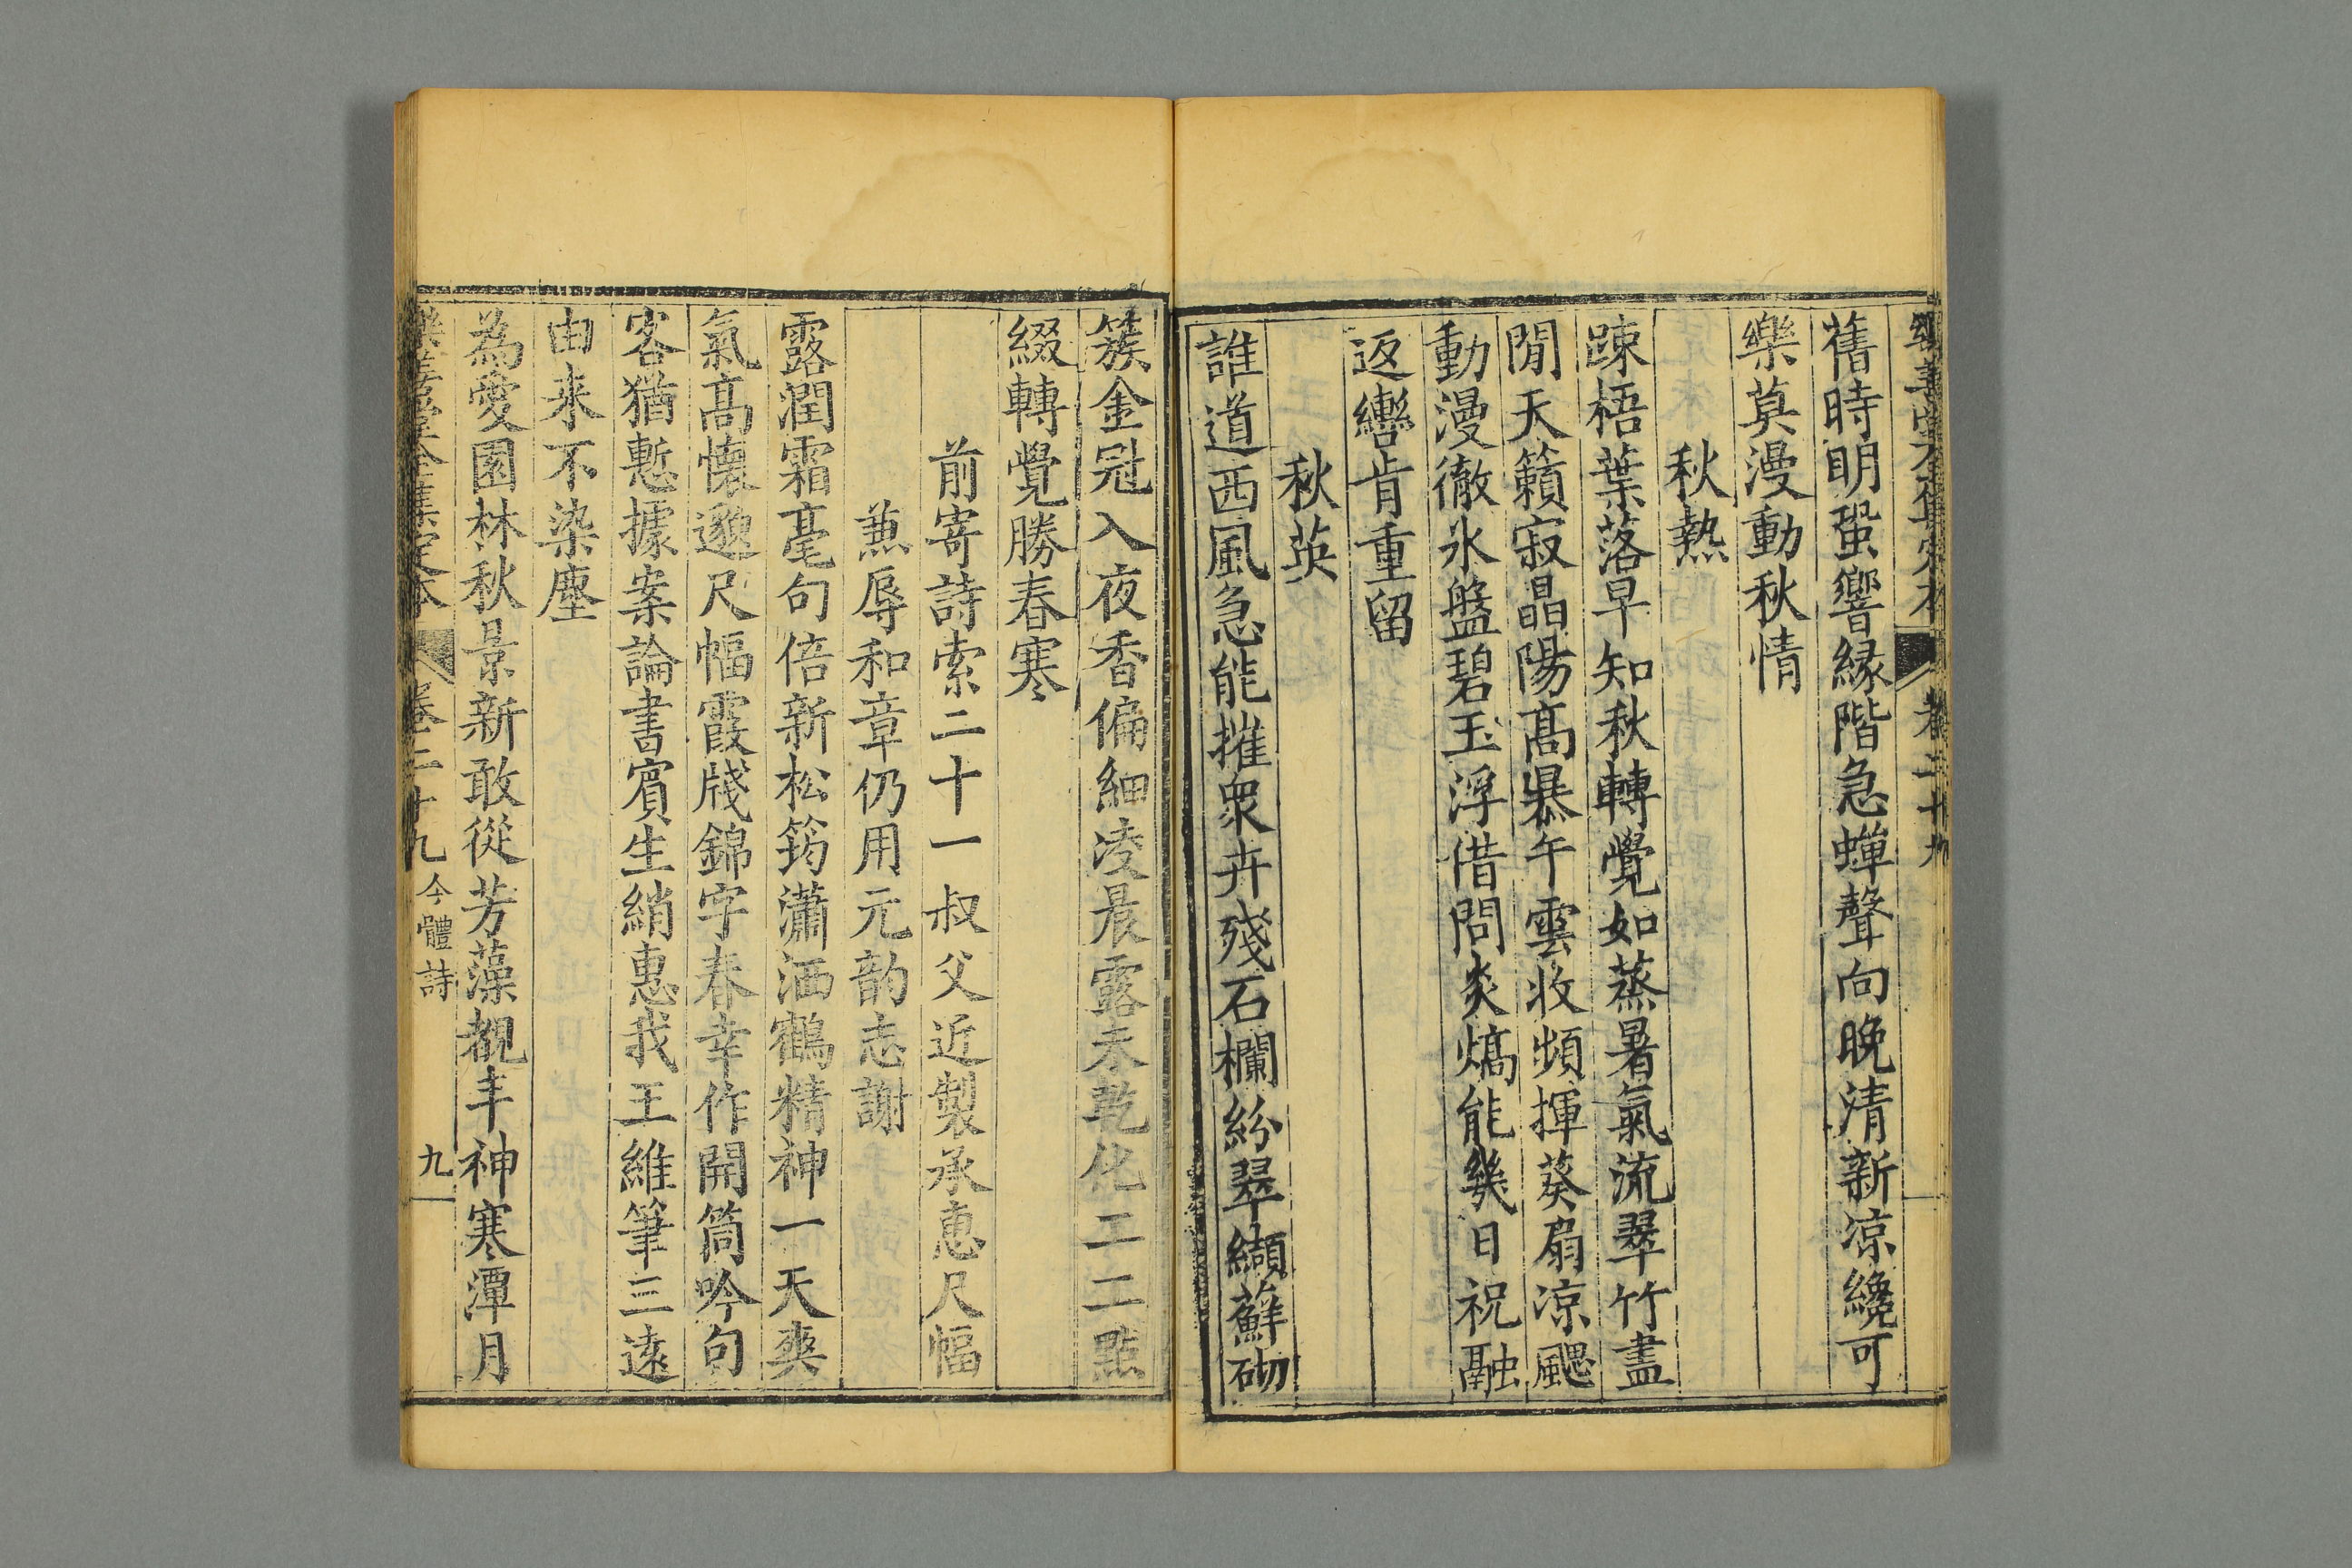 樂善堂全集定本 卷二十九
舊時明蛩響緣階急蟬聲向晚清新凉纔可
樂莫漫動秋情
秋熱
疎梧葉落早知秋轉覺如蒸暑氣流翠竹盡
閒天籟寂晶陽高㬥午雲收頻揮葵扇凉颸
動漫徹氷盤碧玉浮借問炎熇能幾日祝融
返轡肯重留
秋英
誰道西風急能摧衆卉殘石欄紛翠纈蘚砌
簇金冠入夜香偏細凌晨露未乾化工工二點
綴轉覺勝春寒
前寄詩索二十一叔父近製承惠尺幅
兼辱和章仍用元韵志謝
露潤霜毫句倍新松筠瀟洒鶴精神一天爽
氣高懷邈尺幅霞牋錦字春幸作開筒吟句
客猶慙據案論書賓生綃惠我王維筆三遠
由来不染塵
為愛園林秋景新敢從芳藻覩丰神寒潭月
樂善堂全集定本 卷二十九 今體詩 九